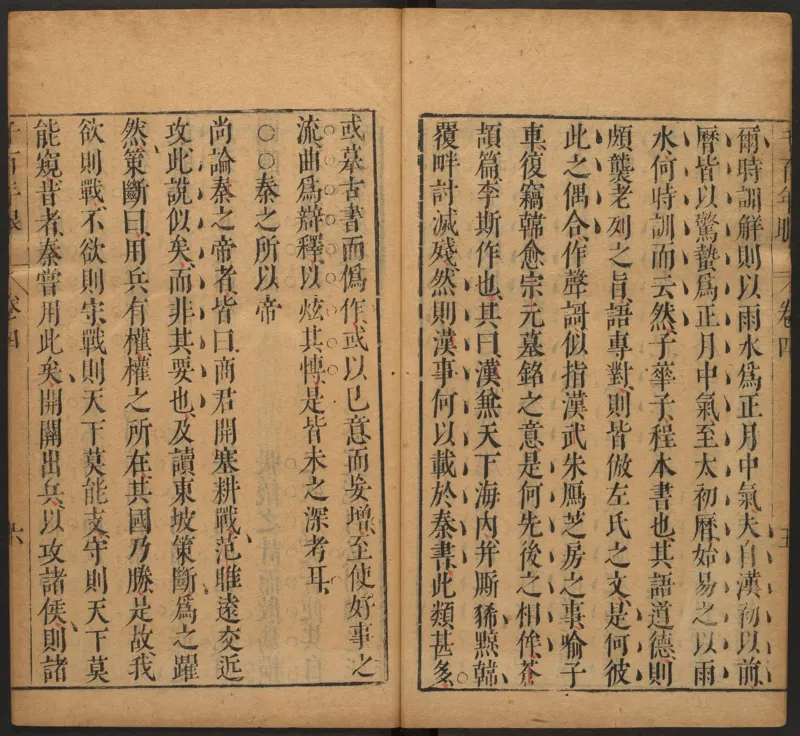 爾時訓解則以雨水爲正月中氣夫自漢初以前
曆皆以驚蟄爲正月中氣至太初曆始易之以雨
水何時訓而云然子華子程本書也其語道德則
頗襲老列之旨語專對則皆倣左氏之文是何彼
此之偶合作聲謌似指漢武朱鴈芝房之事喻子
車復竊韓愈宗元墓銘之意是何先後之相侔蒼
頡篇李斯作也其曰漢兼天下海内并厮豨黥韓
覆畔討滅殘然則漢事何以載於秦書此類甚多
五
或摹古書而僞作或以已意而妄增至使好事之
流曲爲辯釋以炫其慱是皆未之深考耳
○○秦之所以帝
尚論秦之帝者皆曰商君開塞耕戰范雎遠交近
攻此說似矣而非其要也及讀東坡策斷爲之躍
然策斷曰用兵有權權之所在其國乃勝是故我
欲則戰不欲則守戰則天下莫能支守則天下莫
能窺昔者秦嘗用此矣開關出兵以攻諸侯則諸
千百年眼 卷四 六